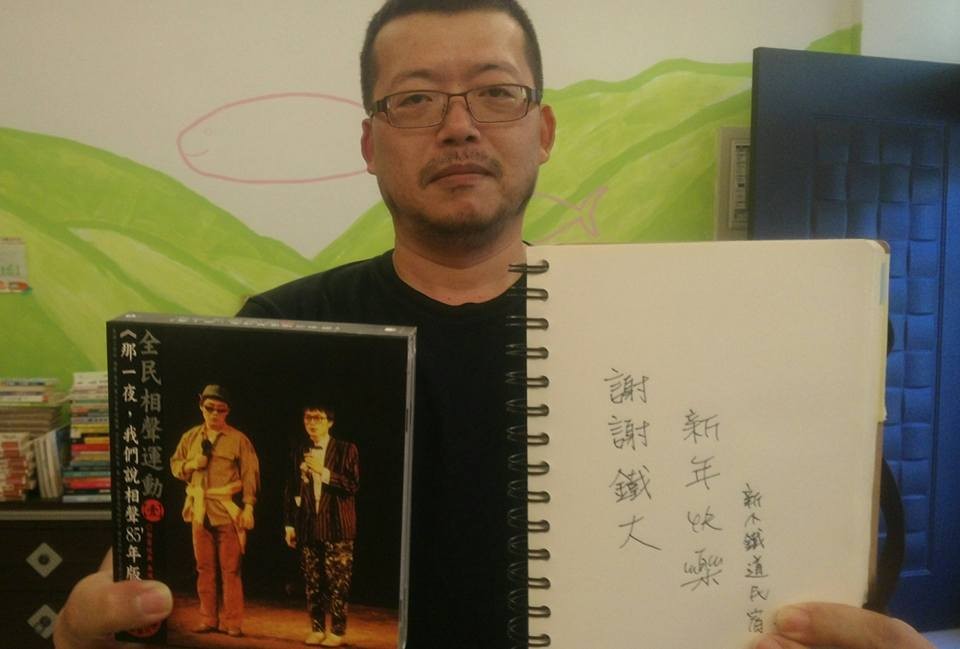 全民相聲運動
壹
《那一夜,我們說相聲85'年版
新木鐵道民宿
新年快樂
謝謝鐵大